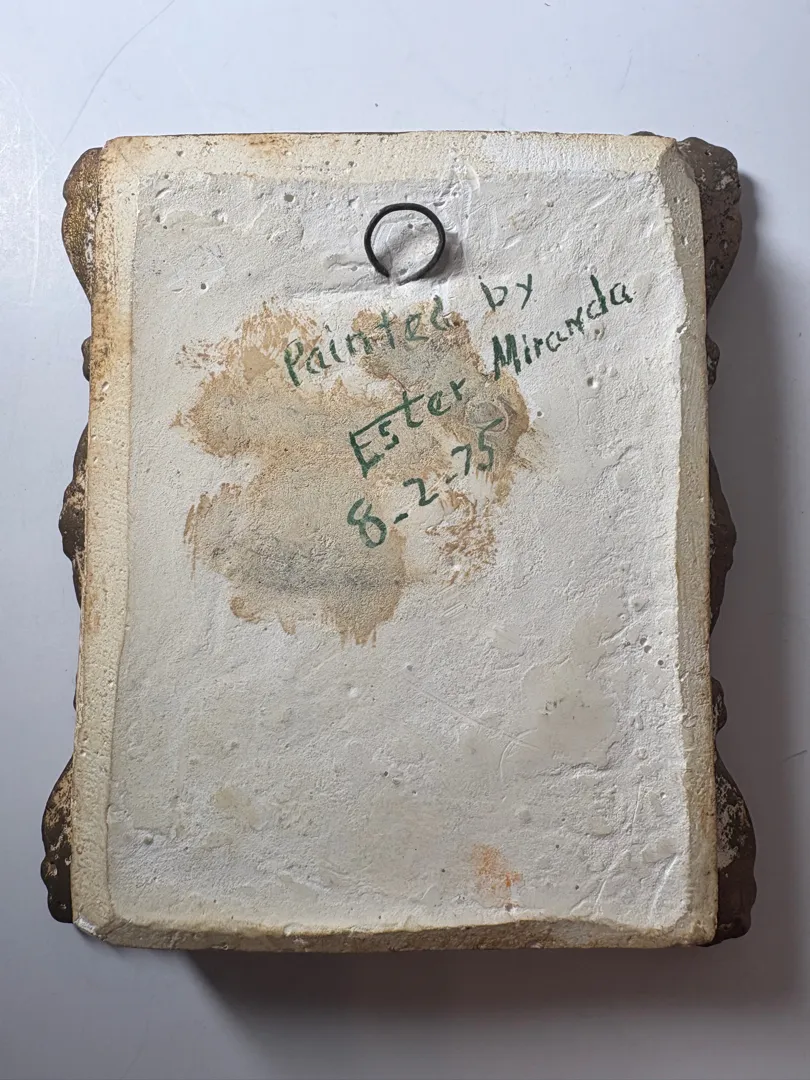 Painted by
Ester Miranda
8-2-75